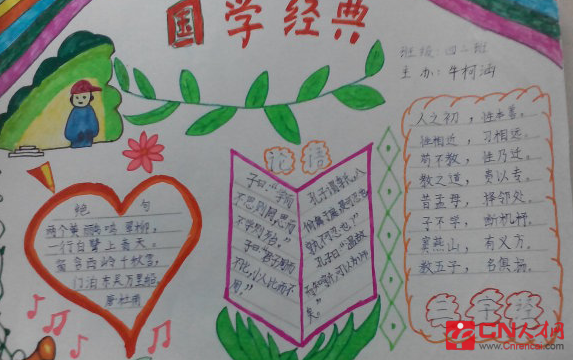 国学经典
班级:四二班
主办:牛柯涵
绝 句
两个黄鹂鸣翠柳,
一行白鹭上青天。
窗含西岭千秋雪,
门泊东吴万里船。
唐杜甫
论语
子曰:“学而
不思则罔,思而
不学则殆。”
子曰:“君子周而
不比,小人比而不
周。”
孔子谓季氏,八
佾舞于庭,是可忍也,
孰不可忍也。”
孔子曰:“温故
而知新,可以为师
矣。”
人之初,性本善。
性相近,习相远。
苟不教,性乃迁。
教之道,贵以专。
昔孟母,择邻处。
子不学,断机杼。
窦燕山,有义方。
教五子,名俱扬。
三字经
CN人才网
www.Cnrencai.com